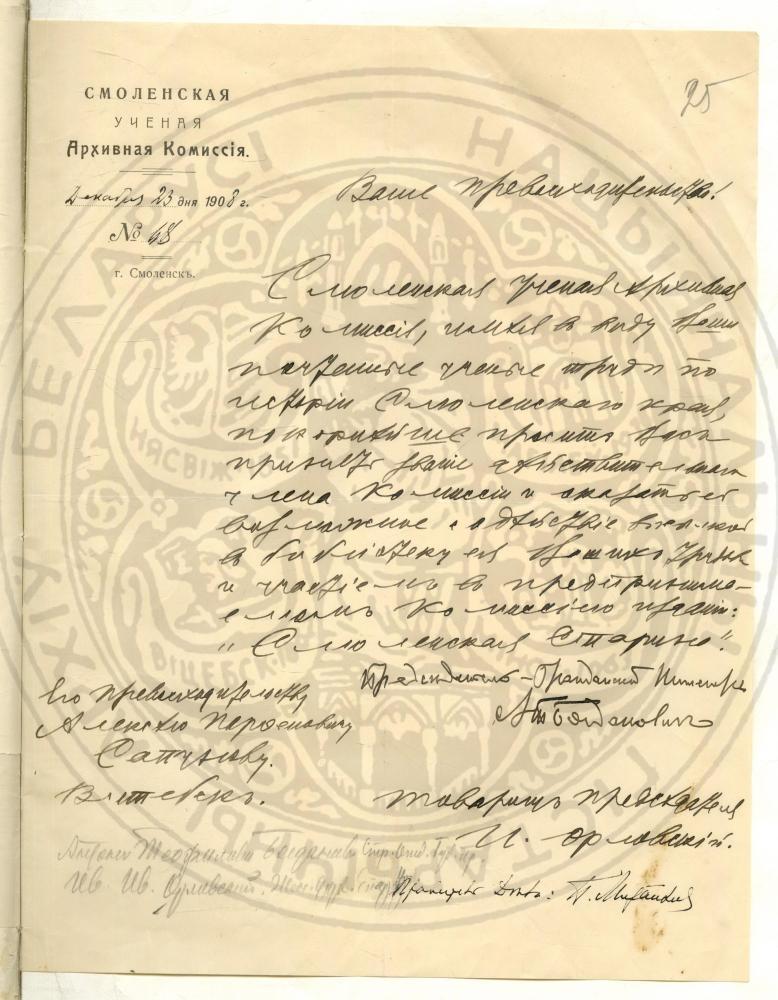 25
СМОЛЕНСКАЯ
УЧЕНАЯ
Архивная Комиссія.
Декабря 23 дня 1908 г.
№ 68
г. Смоленскъ.
Ваше превосходительство!
Смоленская Ученая Архивная
Комиссія, имѣя в виду Ваши
почтенные ученые труды по
исторіи Смоленскаго края,
покорнѣйше проситъ Васъ
принять званіе дѣйствительнаго
члена Комиссіи и оказать ей
возможное содѣйствіе
в библіотеку ея Вашихъ трудовъ
и участіемъ в предпринима-
емомъ Комиссіею изданіи:
"Смоленская Старина".
Предсѣдатель - Гражданскій Инженеръ
Богдановичъ
Его превосходительству
Алексѣю Парѳеновичу
Сапунову.
Витебскъ.
Товарищъ Предсѣдателя
И. Орловскій.
Антоній Теофиловичъ Богдановичъ
Ив. Ив. Орловскій.
Правитель Дѣлъ:
НАЦЫЯНАЛЬНЫ
ГІСТАРЫЧНЫ
АРХІЎ БЕЛАРУСІ
НЯСВІЖ
ВІЦЕБСК